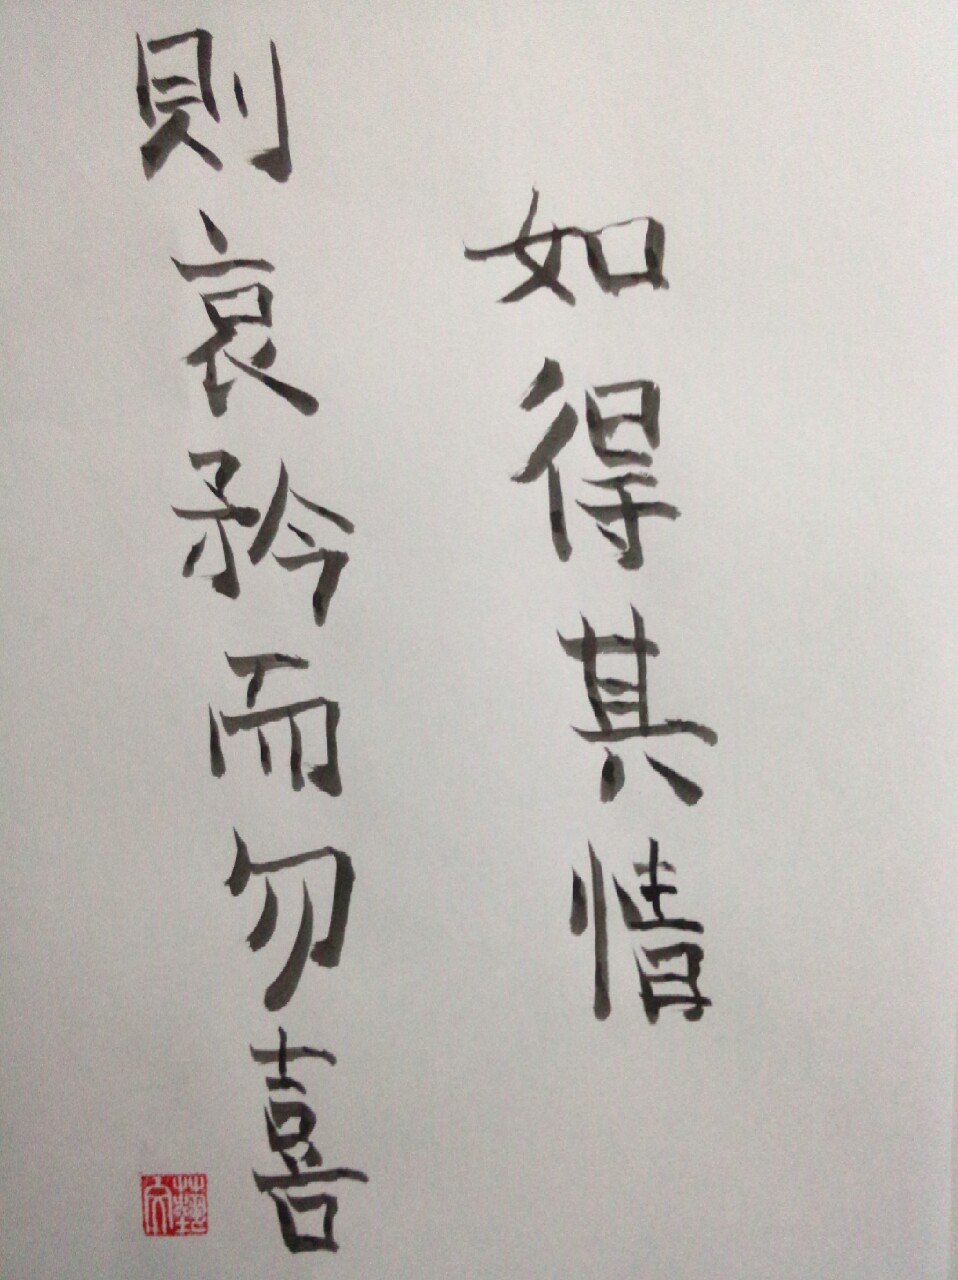 如得其情
則哀矜而勿喜